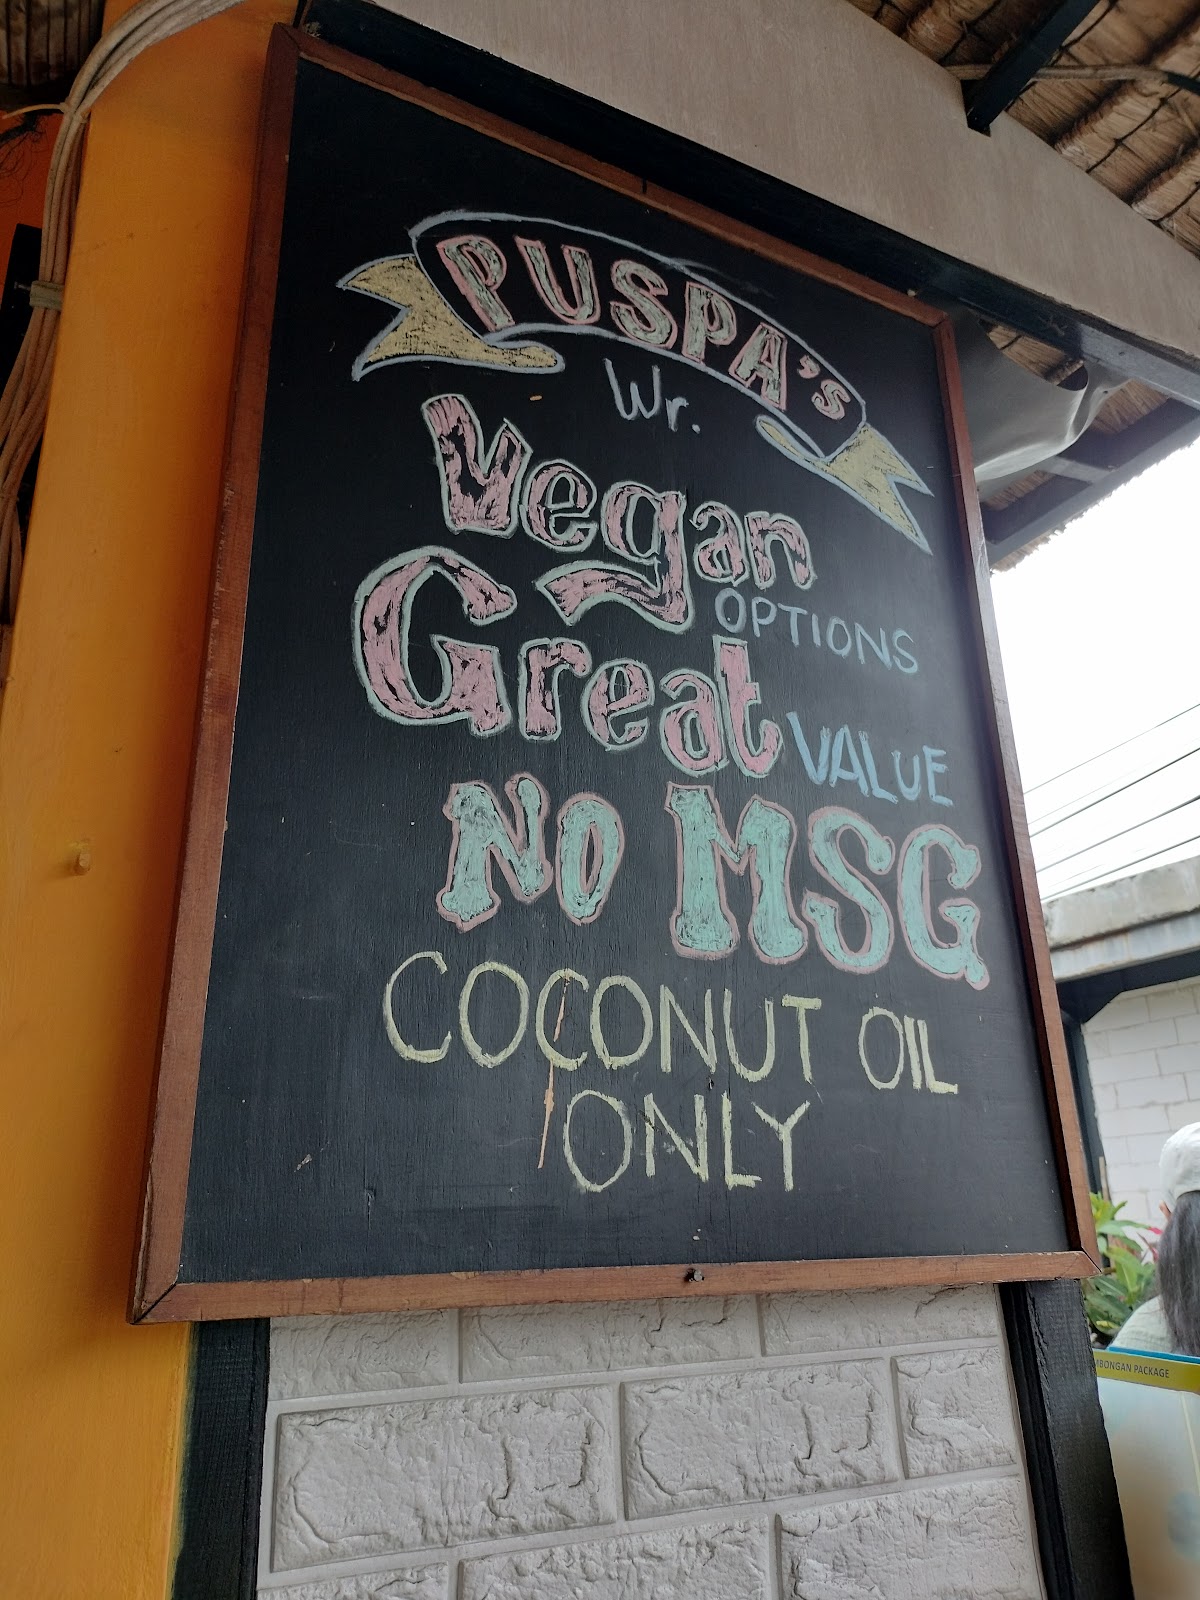 PUSPA's
Wr.
Vegan
OPTIONS
Great VALUE
NO MSG
COCONUT OIL
ONLY
MBONGAN PACKAGE